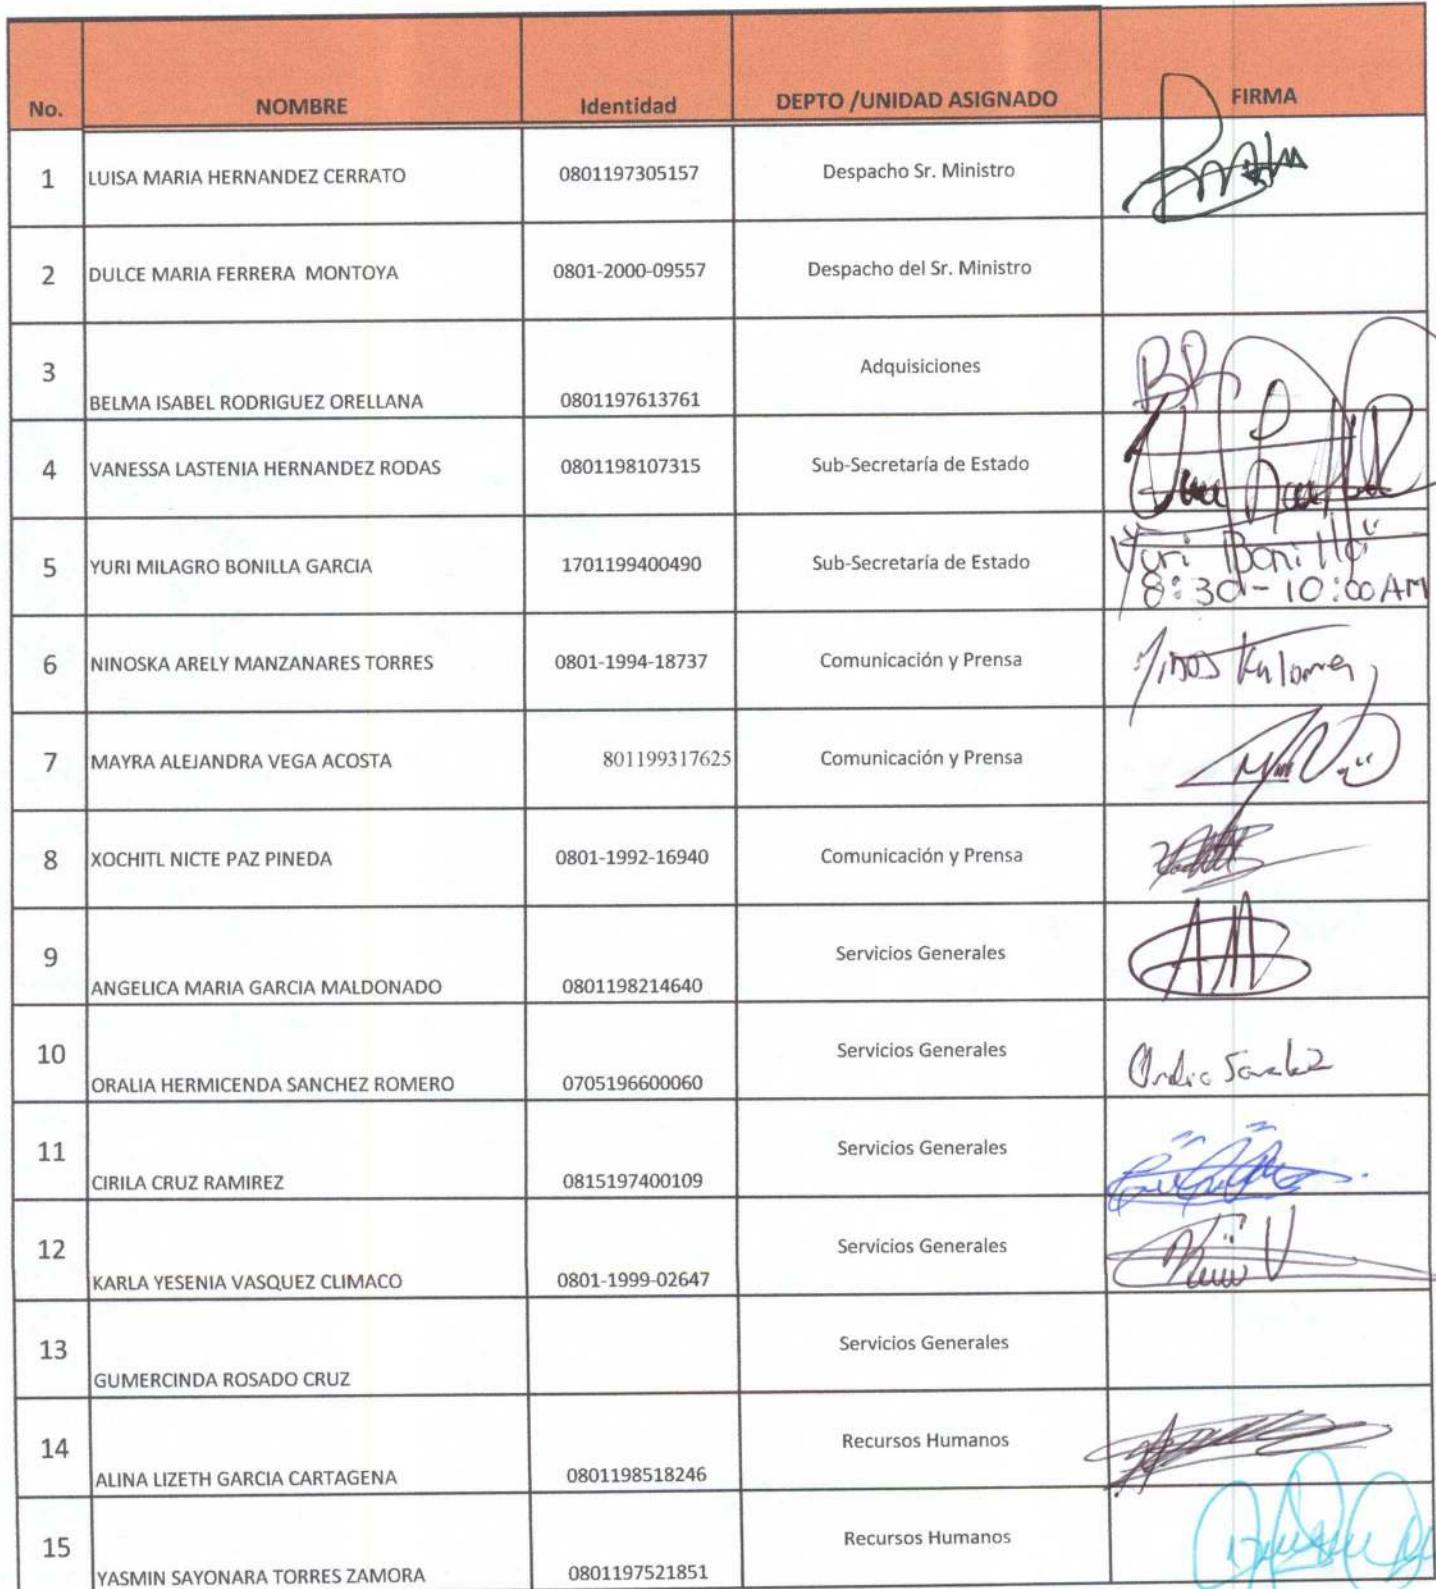 No. NOMBRE Identidad DEPTO /UNIDAD ASIGNADO FIRMA
1 LUISA MARIA HERNANDEZ CERRATO 0801197305157 Despacho Sr. Ministro
2 DULCE MARIA FERRERA MONTOYA 0801-2000-09557 Despacho del Sr. Ministro
3 BELMA ISABEL RODRIGUEZ ORELLANA 0801197613761 Adquisiciones
4 VANESSA LASTENIA HERNANDEZ RODAS 0801198107315 Sub-Secretaría de Estado
5 YURI MILAGRO BONILLA GARCIA 1701199400490 Sub-Secretaría de Estado Yuri Bonilla
8:30-10:00 AM
6 NINOSKA ARELY MANZANARES TORRES 0801-1994-18737 Comunicación y Prensa
7 MAYRA ALEJANDRA VEGA ACOSTA 801199317625 Comunicación y Prensa
8 XOCHITL NICTE PAZ PINEDA 0801-1992-16940 Comunicación y Prensa
9 ANGELICA MARIA GARCIA MALDONADO 0801198214640 Servicios Generales
10 ORALIA HERMICENDA SANCHEZ ROMERO 0705196600060 Servicios Generales
11 CIRILA CRUZ RAMIREZ 0815197400109 Servicios Generales
12 KARLA YESENIA VASQUEZ CLIMACO 0801-1999-02647 Servicios Generales
13 GUMERCINDA ROSADO CRUZ Servicios Generales
14 ALINA LIZETH GARCIA CARTAGENA 0801198518246 Recursos Humanos
15 YASMIN SAYONARA TORRES ZAMORA 0801197521851 Recursos Humanos